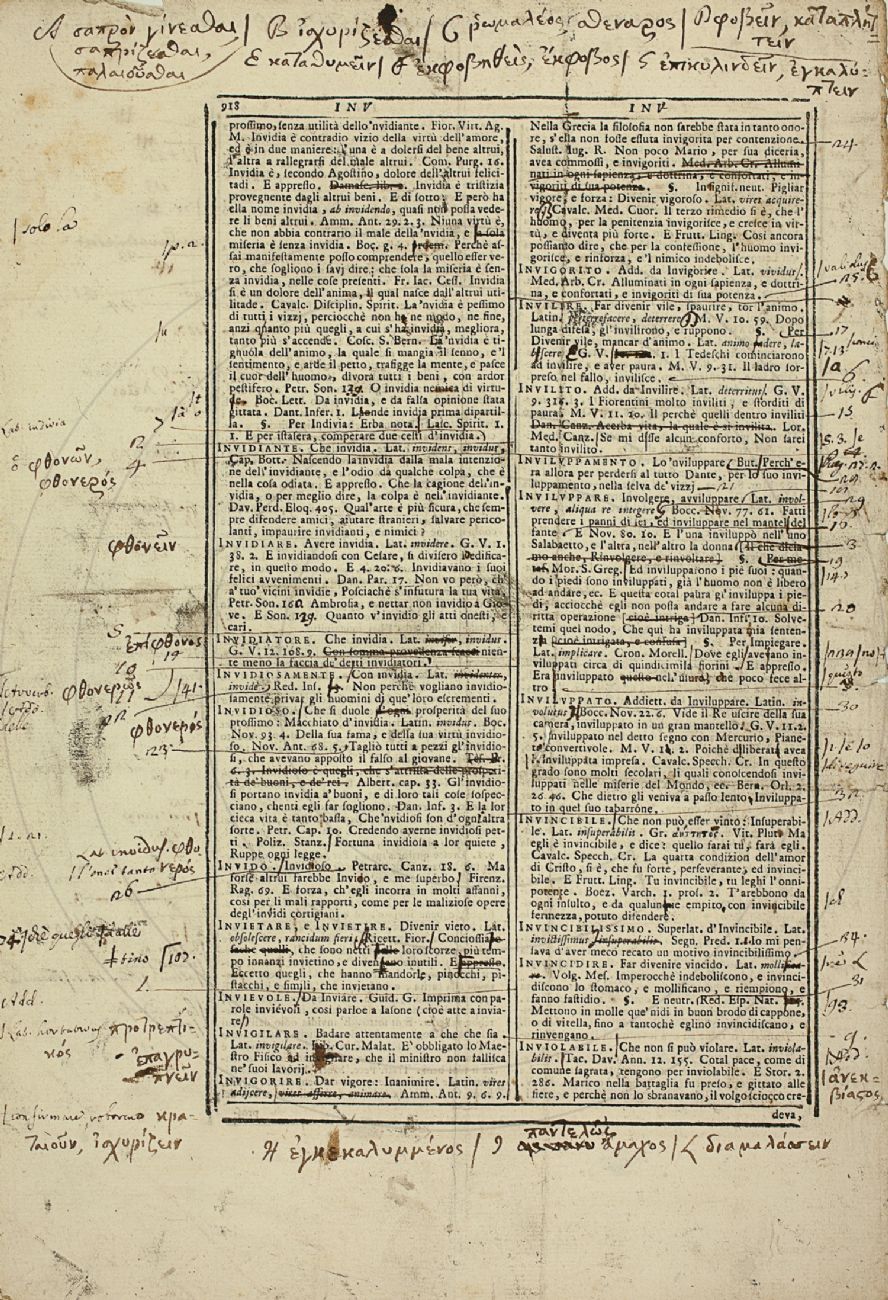 918 INV INV
prossimo, senza utilità dello'nvidiante. Fior. Virt. Ag.
M. Invidia è contradio vizio della virtù dell'amore,
ed è in due maniere: l'una è a dolersi del bene altrui,
l'altra a rallegrarsi del male altrui. Com. Purg. 16.
Invidia è, secondo Agostino, dolore dell'altrui felici-
tadi. E appresso. Damasc. libro. Invidia è tristizia
provegnente dagli altrui beni. E di sotto: E però ha
ella nome invidia, ab invidendo, quasi non possa vede-
re li beni altrui. Amm. Ant. 29. 2. 3. Niuna virtù è,
che non abbia contrario il male della 'nvidia, e la sola
miseria è senza invidia. Boc. g. 4. proem. Perchè as-
sai manifestamente posso comprendere, quello esser ve-
ro, che sogliono i savj dire: che sola la miseria è sen-
za invidia, nelle cose presenti. Fr. Iac. Cess. Invidia
si è un dolore dell'anima, il qual nasce dall'altrui uti-
litade. Cavalc. Disciplin. Spirit. La 'nvidia è pessimo
di tutti i vizzj, perciocchè non ha ne modo, ne fine,
anzi quanto più quegli, a cui s'ha invidia, megliora,
tanto più s'accende. Cosc. S. Bern. La 'nvidia è ti-
gnuola dell'animo, la quale si mangia il senno, e 'l
sentimento, e arde il petto, trafigge la mente, e pasce
il cuor dell'huomo, divora tutti i beni, con ardor
pestifero. Petr. Son. 139. O invidia nemica di virtu-
de. Boc. Lett. Da invidia, e da falsa opinione stata
gittata. Dant. Infer. 1. Là onde invidia prima dipartil-
la. §. Per Indivia: Erba nota. Lasc. Spirit. 1.
1. E per istasera, comperare due cesti d'invidia.
INVIDIANTE. Che invidia. Lat. invidens, invidus.
Cap. Bott. Nascendo la invidia dalla mala intenzio-
ne dell'invidiante, e l'odio da qualche colpa, che è
nella cosa odiata. E appresso. Che la cagione dell'in-
vidia, o per meglio dire, la colpa è nell'invidiante.
Dav. Perd. Eloq. 405. Qual'arte è più sicura, che sem-
pre difendere amici, aiutare stranieri, salvare perico-
lanti, impaurire invidianti, e nimici?
INVIDIARE. Avere invidia. Lat. invidere. G. V. 1.
38. 2. E invidiandosi con Cesare, si divisero d'edifica-
re, in questo modo. E 4. 20. 6. Invidiavano i suoi
felici avvenimenti. Dan. Par. 17. Non vo però, ch'
a tuo' vicini invidie, Posciachè s'infutura la tua vita.
Petr. Son. 160. Ambrosia, e nettar non invidio a Gio-
ve. E Son. 129. Quanto v'invidio gli atti onesti, e
cari.
INVIDIATORE. Che invidia. Lat. invisor, invidus.
G. V. 12. 168. 9. Con somma provedenza facea nien-
te meno la faccia de' detti invidiatori.
INVIDIOSAMENTE. Con invidia. Lat. invidenter,
invidè. Red. Ins. Non perchè vogliano invidio-
samente privar gli huomini di que' loro escrementi.
INVIDIOSO. Che si duole d'ogni prosperità del suo
prossimo: Macchiato d'invidia. Latin. invidus. Boc.
Nov. 93. 4. Della sua fama, e della sua virtù invidio-
so. Nov. Ant. 68. 5. Tagliò tutti a pezzi gl'invidio-
si, che avevano apposto il falso al giovane. Tes. Br.
6. 3. Invidioso è quegli, che s'attrista delle prosperi-
tà de' buoni, e de' rei. Albert. cap. 33. Gl'invidio-
si portano invidia a' buoni, e di loro tai cose sospec-
ciano, chenti egli far sogliono. Dan. Inf. 3. E la lor
cieca vita è tanto bassa, Che 'nvidiosi son d'ogni altra
sorte. Petr. Cap. 10. Credendo averne invidiosi pet-
ti. Poliz. Stanz. Fortuna invidiosa a lor quiete,
Ruppe ogni legge.
INVIDO. Invidioso. Petrarc. Canz. 18. 6. Ma
forse altrui farebbe Invido, e me superbo. Firenz.
Rag. 69. E forza, ch'egli incorra in molti affanni,
così per li mali rapporti, come per le maliziose opere
degl'invidi cortigiani.
INVIETARE, e INVIETIRE. Divenir vieto. Lat.
obsolescere, rancidum fieri. Ricett. Fior. Conciossia-
sache quelli, che sono netti dalle loro scorze, più tem-
po innanzi invietino, e diventano inutili. E appresso.
Eccetto quegli, che hanno mandorle, pinocchi, pi-
stacchi, e simili, che invietano.
INVIEVOLE. Da Inviare. Guid. G. Imprima con pa-
role invievoli, così parloe a Iasone (cioè atte a invia-
re)
INVIGILARE. Badare attentamente a che che sia.
Lat. invigilare. Cur. Malat. E' obbligato lo Mae-
stro Fisico ad invigilare, che il ministro non fallisca
ne' suoi lavorij.
INVIGORIRE. Dar vigore: Inanimire. Latin. vires
adijcere, vires afferre, animare. Amm. Ant. 9. 6. 9.
Nella Grecia la filosofia non sarebbe stata in tanto ono-
re, s'ella non fosse essuta invigorita per contenzione.
Salust. Iug. R. Non poco Mario, per sua diceria,
avea commossi, e invigoriti. Med. Arb. Cr. Allumi-
nati in ogni sapienza, e dottrina, e confortati, e in-
vigoriti di sua potenza. §. In signif. neut. Pigliar
vigore, e forza: Divenir vigoroso. Lat. vires acquire-
re. Cavalc. Med. Cuor. Il terzo rimedio si è, che l'
huomo, per la penitenzia invigorisce, e cresce in vir-
tù, e diventa più forte. E Frutt. Ling. Così ancora
possiamo dire, che per la confessione, l'huomo invi-
gorisce, e rinforza, e 'l nimico indebolisce.
INVIGORITO. Add. da Invigorire. Lat. vividus.
Med. Arb. Cr. Alluminati in ogni sapienza, e dottri-
na, e confortati, e invigoriti di sua potenza.
INVILIRE. Far divenir vile, spaurire, tor l'animo.
Latin. pigrefacere, deterrere. M. V. 10. 59. Dopo
lunga difesa, gl'invilirono, e ruppono. §. Per
Divenir vile, mancar d'animo. Lat. animo cadere, la-
bascere. G. V. 1. I Tedeschi cominciarono
ad invilire, e aver paura. M. V. 9. 31. Il ladro sor-
preso nel fallo, invilisce.
INVILITO. Add. da Invilire. Lat. deterritus. G. V.
9. 316. 3. I Fiorentini molto inviliti, e storditi di
paura. M. V. 11. 10. Il perchè quelli dentro inviliti
Dan. Canz. Acerba vita, la quale è si invilita. Lor.
Med. Canz. Se mi desse alcun conforto, Non sarei
tanto invilito.
INVILUPPAMENTO. Lo 'nviluppare. But. Perch'e-
ra allora per perdersi al tutto Dante, per lo suo invi-
luppamento, nella selva de' vizzj
INVILUPPARE. Involgere, avviluppare. Lat. invol-
vere, aliqua re integere. Bocc. Nov. 77. 61. Fatti
prendere i panni di lei, ed inviluppare nel mantel del
fante. E Nov. 80. 10. E l'una inviluppò nell'uno
Salabaetto, e l'altra, nell'altro la donna (Si che dicia-
mo anche, Rinvolgere, e rinvoltare) §. Per me-
taf. Mor. S. Greg. Ed invilupparono i piè suoi: quan-
do i piedi sono inviluppati, già l'huomo non è libero
ad andare, ec. E questa cotal paura gl'inviluppa i pie-
di, acciocchè egli non possa andare a fare alcuna di-
ritta operazione [cioè intriga] Dan. Inf. 10. Solve-
temi quel nodo, Che qui ha inviluppata mia senten-
za [cioè intrigata, e confusa] §. Per Impiegare.
Lat. implicare. Cron. Morell. Dove egli avevano in-
viluppati circa di quindicimila fiorini. E appresso.
Era inviluppato quello nell'usura, che poco fece al-
tro
INVILUPPATO. Addiett. da Inviluppare. Latin. in-
volutus. Bocc. Nov. 22. 6. Vide il Re uscire della sua
camera, inviluppato in un gran mantello. G. V. 11. 2.
5. inviluppato nel detto segno con Mercurio, Piane-
to convertevole. M. V. 11. 2. Poichè diliberata avea
la 'nviluppata impresa. Cavalc. Speech. Cr. In questo
grado sono molti secolari, li quali conoscendosi invi-
luppati nelle miserie del Mondo, ec. Bern. Orl. 2.
26. 46. Che dietro gli veniva a passo lento, Inviluppa-
to in quel suo tabarrone.
INVINCIBILE. Che non può esser vinto: Insuperabi-
le. Lat. insuperabilis. Gr. ἀήττητος. Vit. Plut. Ma
egli è invincibile, e dice: quello farai tu, farà egli.
Cavalc. Specch. Cr. La quarta condizion dell'amor
di Cristo, si è, che fu forte, perseverante, ed invinci-
bile. E Frutt. Ling. Tu invincibile, tu leghi l'onni-
potente. Boez. Varch. 1. prof. 2. T'arebbono da
ogni insulto, e da qualunque empito, con invincibile
fermezza, potuto difendere.
INVINCIBILISSIMO. Superlat. d'Invincibile. Lat.
invictissimus, insuperabilis. Segn. Pred. 1. 1. Io mi pen-
sava d'aver meco recato un motivo invincibilissimo.
INVINCIDIRE. Far divenire vincido. Lat. mollifice-
re. Volg. Mes. Imperocchè indeboliscono, e invinci-
discono lo stomaco, e mollificano, e riempiono, e
fanno fastidio. §. E neutr. Red. Esp. Nat.
Mettono in molle que' nidi in buon brodo di cappone,
o di vitella, fino a tantochè eglino invincidiscano, e
rinvengano.
INVIOLABILE. Che non si può violare. Lat. inviola-
bilis. Tac. Dav. Ann. 12. 155. Cotal pace, come di
comune sagrata, tengono per inviolabile. E Stor. 2.
286. Marico nella battaglia fu preso, e gittato alle
fiere, e perchè non lo sbranavano, il volgo sciocco cre-
deva,
A σαπρὸν γίνεσθαι / B ἰσχυρίζεσθαι / C ῥωμαλέος, σθεναρὸς / D φοβεῖν, καταπλήττειν
σαπρίζεσθαι,
παλαιοῦσθαι
E καταθυμεῖν / ἐκφοβηθεὶς, ἔκφοβος / ἐπικυλινδεῖν, ἐγκαλύπτειν
solo la
ὁ φθονῶν,
φθονερός
φθονεῖν
ἐπίφθονος
φθονερῶς
φθονερός
123
26
προτρεπτικός
ἐπαγρυπνεῖν
κραταιοῦν, ἰσχυρίζειν
24
17
15
20
30
Add.
ἀνεκβίαστος
H ἐγκεκαλυμμένος / 9 παντελῶς ἄμαχος / διαμαλάσσειν